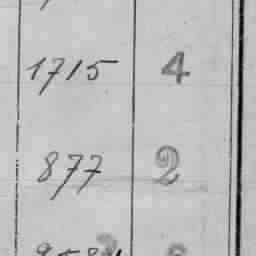 1715 4
877 2